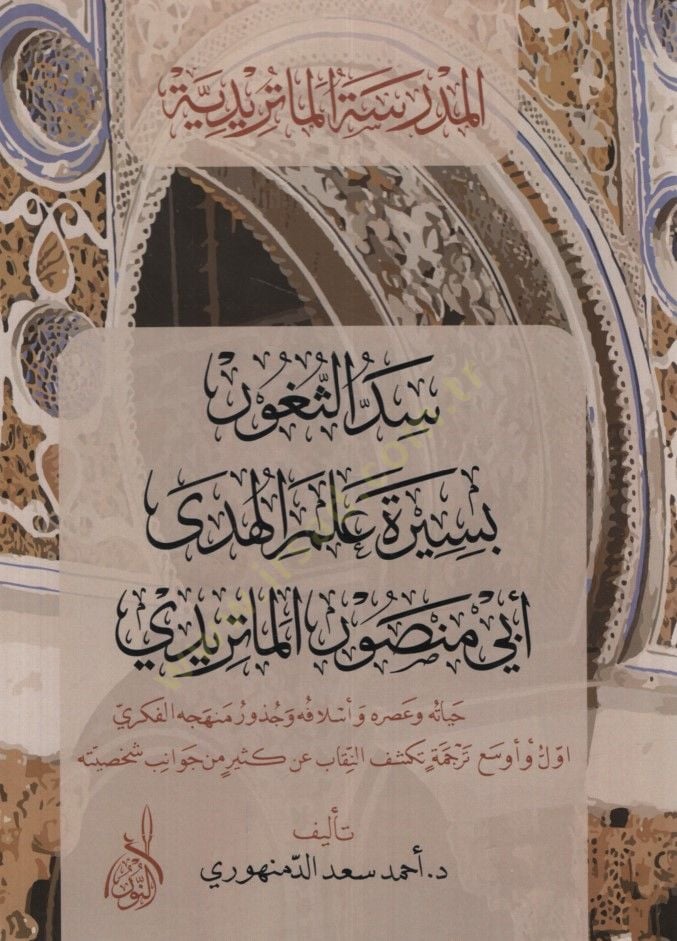 المدرسة الماتريدية
سد الثغور
بسيرة علم الهدى
أبي منصور الماتريدي
حياته وعصره وأسلافه وجذور منهجه الفكري
أول وأوسع ترجمة تكشف النقاب عن كثير من جوانب شخصيته
تأليف
د. أحمد سعد الدمنهوري
النور